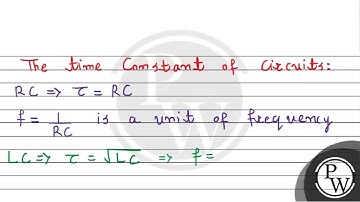 The time Constant of Circuits:
RC ⇒ τ = RC
f = 1/RC is a unit of frequency
LC ⇒ τ = √LC ⇒ f =
P
W